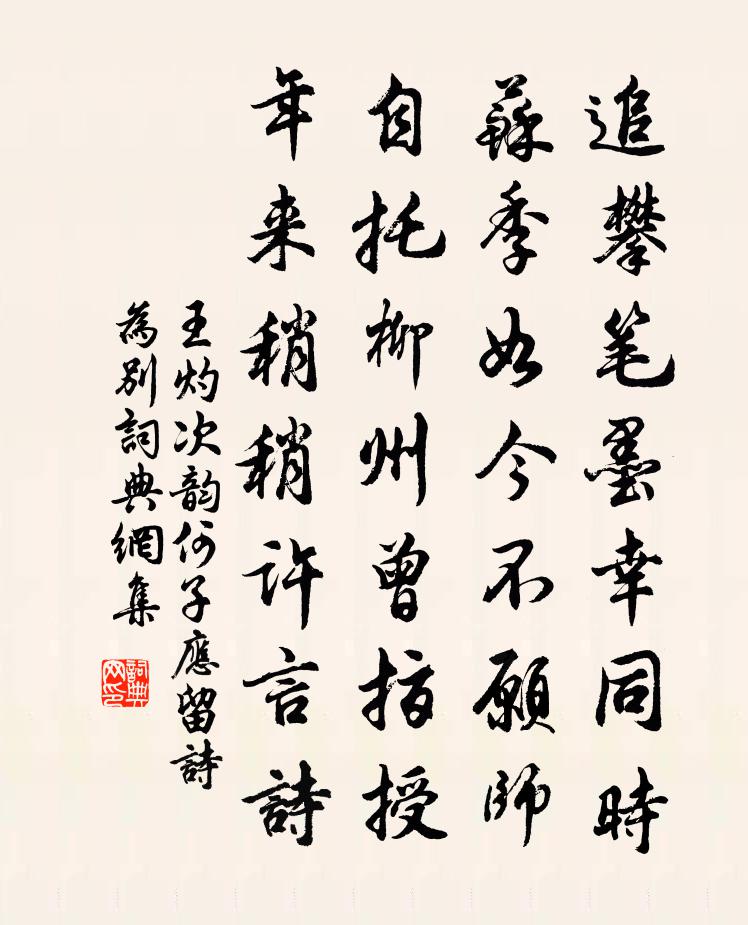 追攀笔墨幸同時
蘇季如今不願師
自托柳州曾指授
年来稍稍許言詩
王灼次韵何子應留詩
為別詞典網集
詞典网印